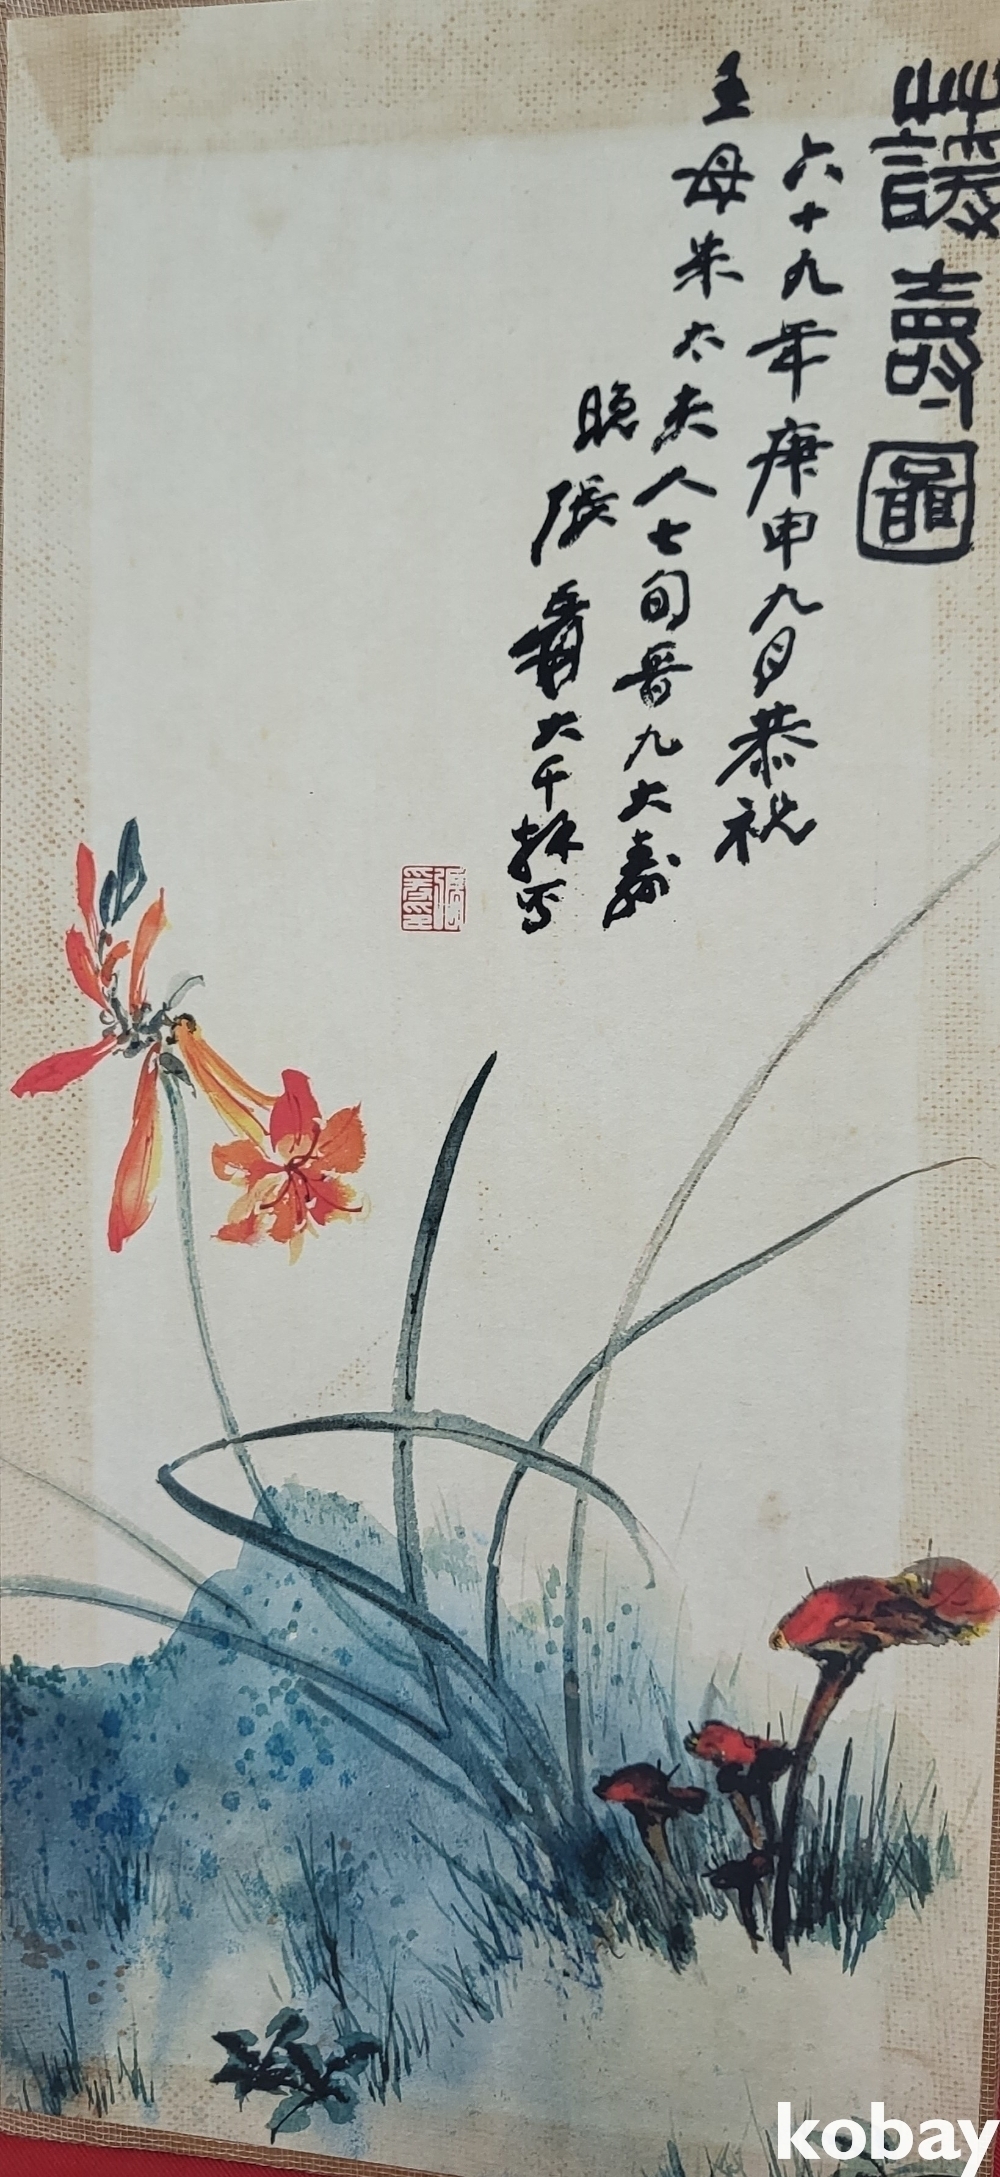 蘐壽圖
六十九年庚申九月恭祝
王母朱太夫人七旬晉九大壽
晚張爰大千拜寫
張爰之印
kobay